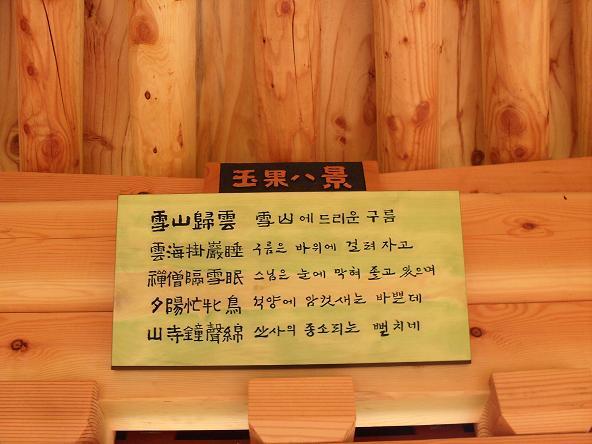 玉果八景
雪山歸雲 雪山에 드리운 구름
雲海掛巖睡 구름은 바위에 걸려 자고
禪僧隔雪眠 스님은 눈에 막혀 졸고 있으며
夕陽忙牝鳥 석양에 암컷새는 바쁜데
山寺鐘聲綿 산사의 종소리는 뻗치네